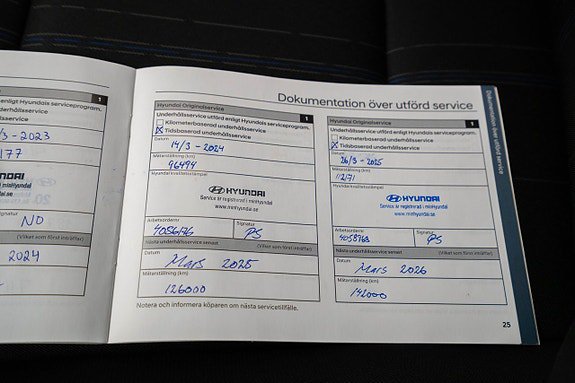 enligt Hyundais serviceprogram.
1
underhållsservice
3-2023
177
ND
2024
Dokumentation över utförd service
Hyundai Originalservice
1
Underhållsservice utförd enligt Hyundais serviceprogram.
Kilometerbaserad underhållsservice
X Tidsbaserad underhållsservice
Datum
14/3-2024
Mätarställning (km)
96494
Hyundai kvalitetsstämpel
HYUNDAI
Service är registrerad i minHyundai
www.minhyundai.se
Arbetsordernr
4056176
Signatur
PS
Nästa underhållsservice senast
(Vilket som först inträffar)
Datum
Mars 2025
Mätarställning (km)
126000
Notera och informera köparen om nästa servicetillfälle.
Hyundai Originalservice
1
Underhållsservice utförd enligt Hyundais serviceprogram.
Kilometerbaserad underhållsservice
X Tidsbaserad underhållsservice
Datum
26/3-2025
Mätarställning (km)
Hyundai kvalitetsstämpel
HYUNDAI
Service är registrerad i minHyundai
www.minhyundai.se
Arbetsordernr
4058763
Signatur
PS
Nästa underhållsservice senast
(Vilket som först inträffar)
Datum
Mars 2026
Mätarställning (km)
142000
25
Dokumentation över utförd service